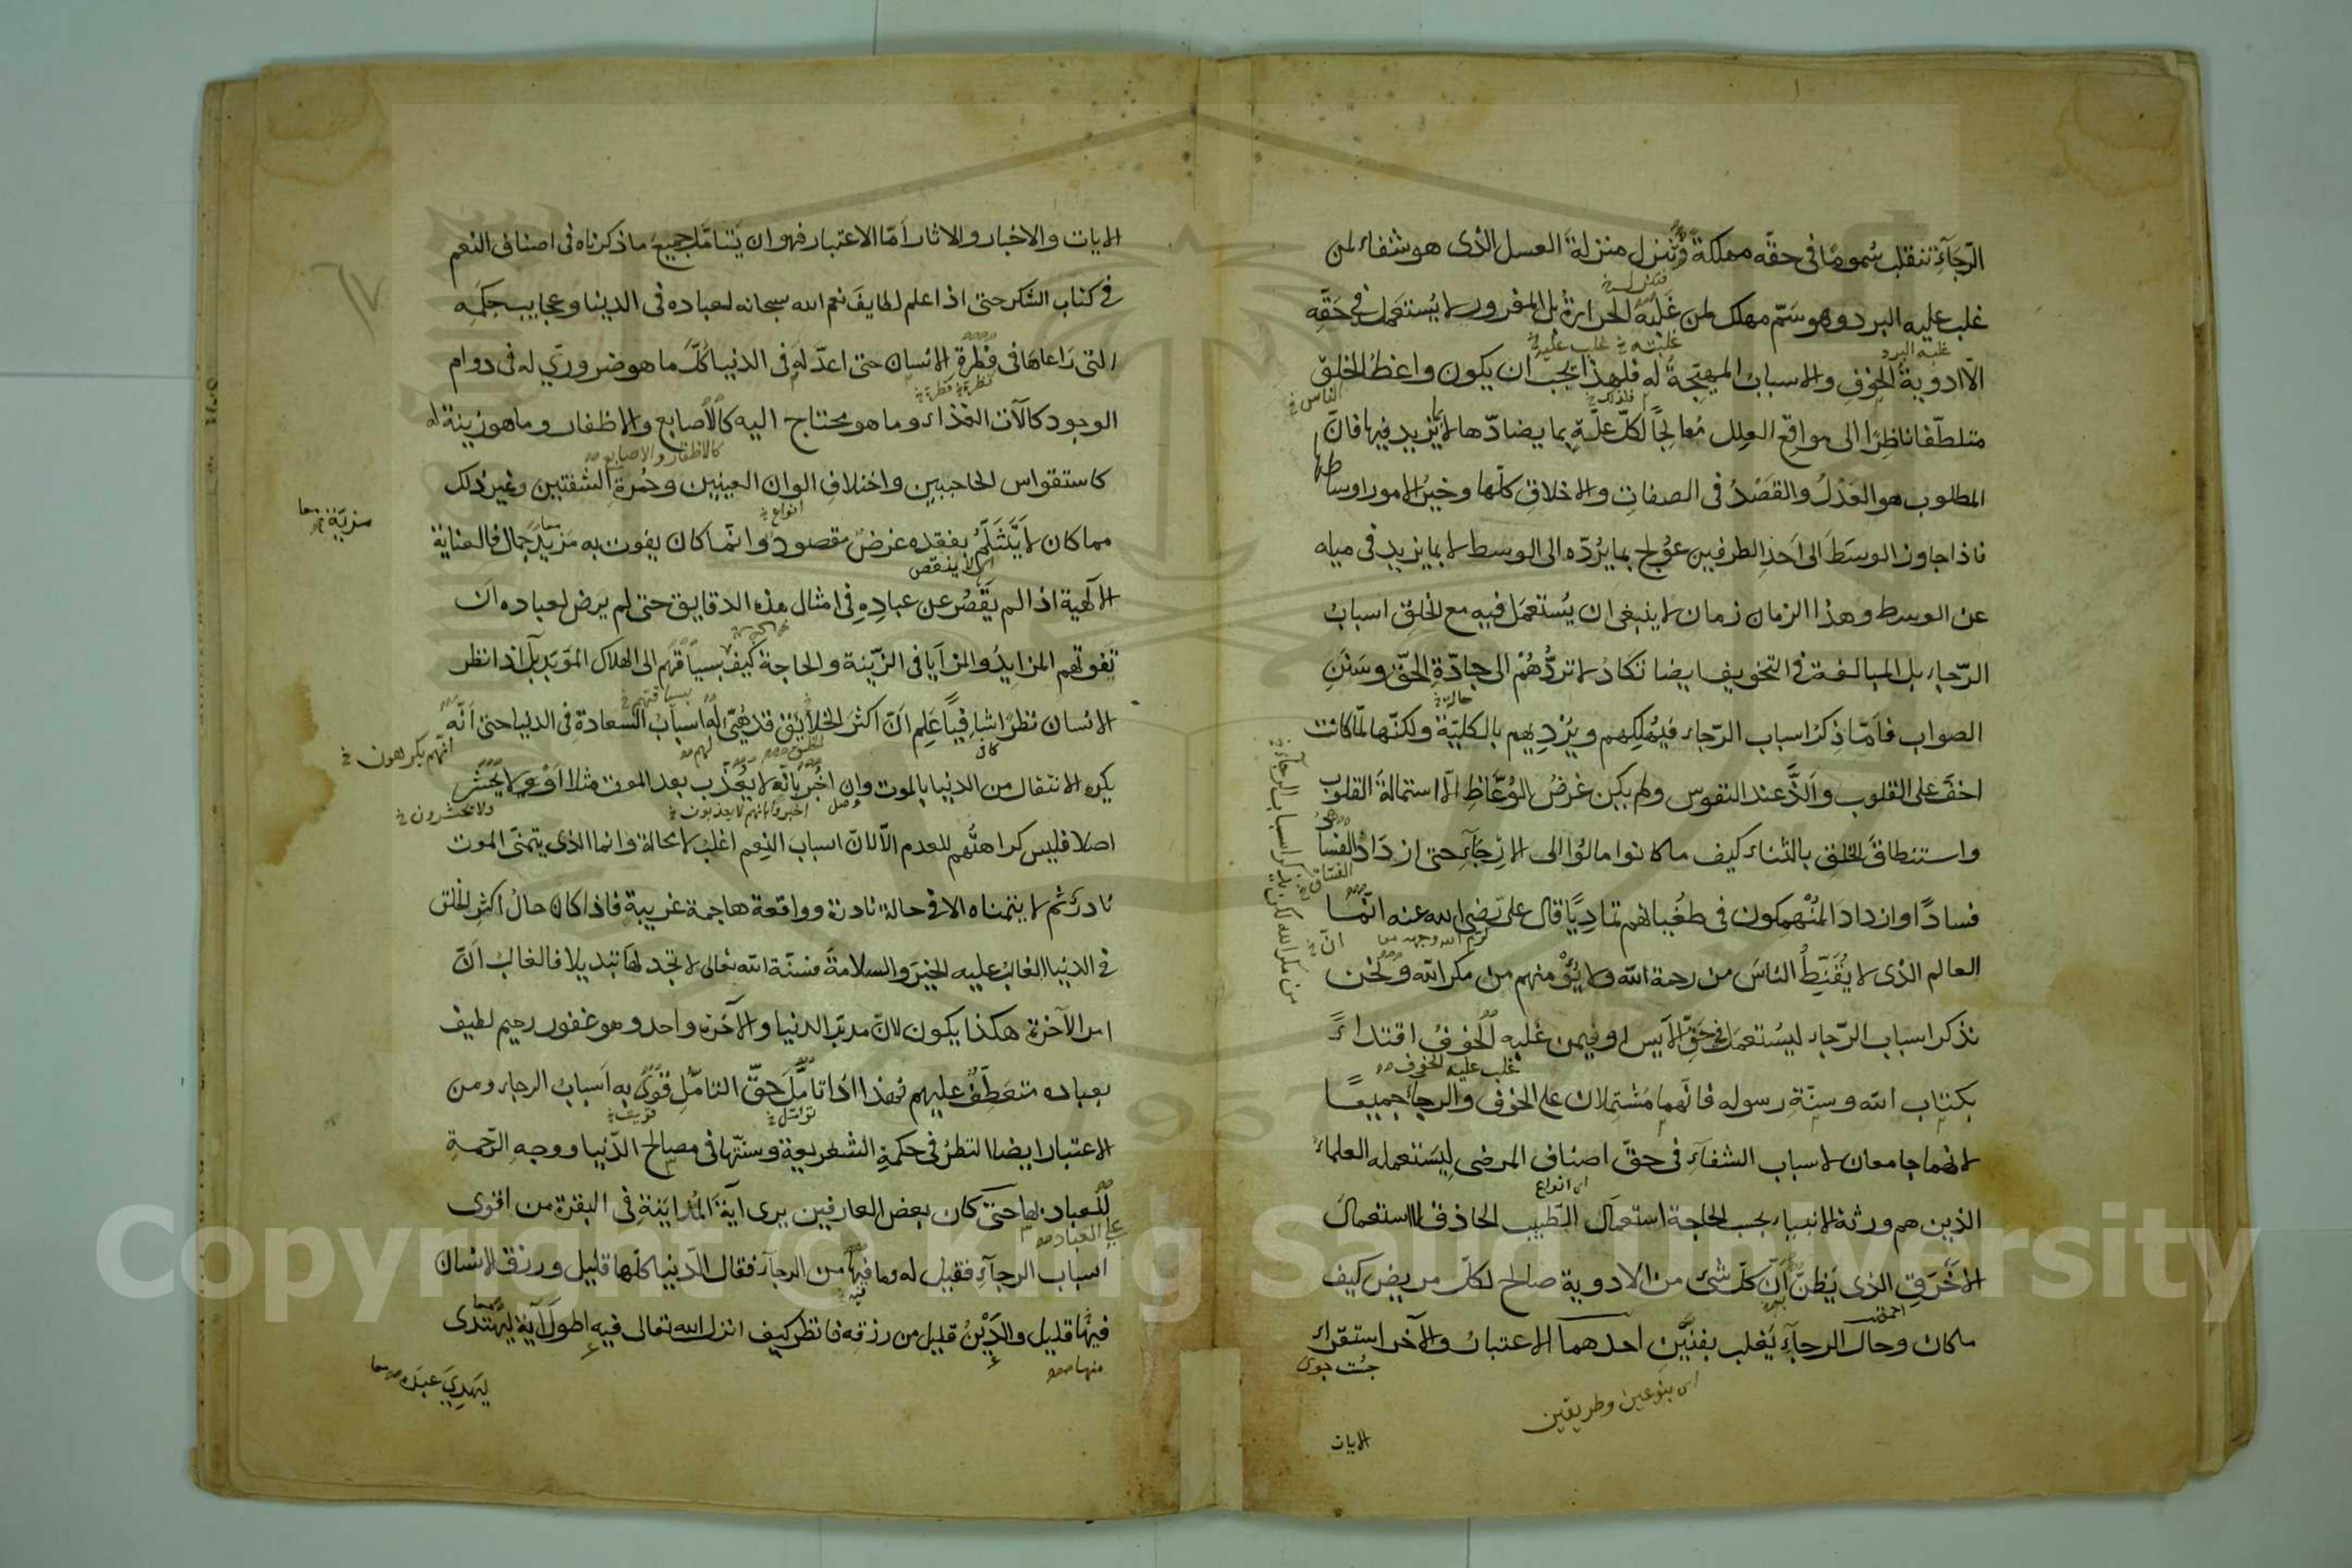 الرّجَآءِ تنقلب سُمومًا فى حقّه مهلكةً وتنزل منزلةَ العسل الذى هو شفاء لمن
غلب عليه البرد وهو سَمّ مهلك لمن غَلَبَهُ الحرارةُ بل المغرور لا يُستعمَل فى حَقِّه
الّا ادويةُ الخوفِ والاسبابُ المهيّجةُ له فلهذا يجب ان يكون واعظُ الخلقِ
متلطّفا ناظِرًا الى مواقِع العِلل مُعالِجًا لكلّ علّةٍ بما يضادّها لا بما يزيد فيها فانّ
المطلوب هو العَدْلُ والقَصْدُ فى الصفاتِ والاخلاقِ كلّها وخيرُ الامور اوساطها
فاذا جاوز الوسَطَ الى اَحَدِ الطرفين عُولج بما يرُدّه الى الوسط لا بما يزيد فى ميله
عن الوسط وهذا الزمان زمان لا ينبغى ان يُستعمَل فيه مع الخلق اسبابُ
الرّجاء بل المبالغة فى التخويف ايضا تكادُ لا تردُّهُمْ الى جادّةِ الحقّ وسَنَنِ
الصواب فامّا ذِكرُ اسباب الرّجاء فيُهلِكهم ويُرْدِيهم بالكليّة ولكنّها لمّا كانت
اخفَّ على القلوب واَلَذَّ عند النفوس ولم يكن غرضُ الوُعَّاظِ الّا استمالةَ القلوب
واستنطاقَ الخلقِ بالثناء كيف ما كانوا مالُوا الى الارجَآءِ حتى ازدَادَ الفسادُ
فسادًا وازداد المُنْهمِكون فى طغيانهم تماديًا قال علىّ رضى الله عنه انّما
العالم الذى لا يُقَنِّطُ الناسَ من رحمة الله ولا يُؤْمنهم من مكر الله ونحن
نذكر اسباب الرّجاء ليُستعمَل فى حَقّ الآيس او فيمن غلبه الخوفُ اقتداءً
بكتاب الله وسنّةِ رسوله فانّهما مُشتمِلان على الخوف والرجاء جميعًا
لانهما جامعان لاسباب الشفآءِ فى حقّ اصناف المرضى لِيَستعمله العلماءُ
الذين هم ورثة الانبياء بحسب الحاجة استعمالَ الطّبيب الحاذق لا استعمالَ
الاَخْرَقِ الذى يَظنّ اَنّ كلّ شئ من الادوية صالح لكلّ مريض كيف
ما كان وحال الرجآءِ يَغلب بفنَّيْن احدهما الاعتبار والآخر استقراء
غلبه البرد
غلبته خ غلب عليه
فلذلك خ
الناس خ
حالة خ
الفسّاق خ
كرّم الله وجهه
انّ خ
غلب عليه الخوف
اى انواع
احمق
جُست جوى
اى بنوعين وطريقين
الايات
الايات والاخبار والاثار اَمّا الاعتبار فهو ان يَتامّل جميعَ ما ذكرناه فى اصناف النعم
فى كتاب الشكر حتى اذا علم لطايفَ نعم الله سبحانه لعباده فى الدنيا وعجايب حِكَمِه
التى رَاعاهَا فى فطرة الانسان حتى اعدّ له فى الدنيا كُلّ ما هو ضروريّ له فى دوام
الوجود كآلات الغذاء وما هو محتاج اليه كالاصابع والاظفار وما هو زينة له
كاستقواس الحاجبين واختلافِ الوان العينين وحُمْرةِ الشفتين وغير ذلك
مما كان لا يَنثَلِمُ بفقده غرضٌ مقصود وانّما كان يفوت به مَزيدُ جمال فالعناية
الالهية اذا لم يَقصُر عن عبادِهِ فى امثال هذه الدقايق حتى لم يرض لعباده ان
تفوتهم المزايدُ والمزايَا فى الزّينة والحاجة كيفَ بسياقهم الى الهلاك المؤبّد بل اذا نظر
الانسان نظرًا شافِيًا عَلِم اَنّ اكثرَ الخلائق قد هُيّئ له اسبابُ السعادةِ فى الدنيا حتى اَنّه
يكره الانتقال من الدنيا بالموت وان اُخْبر بانّه لا يُعَذّب بعد الموت مثلا اَوْ لا يُحشَر
اصلا فليس كراهتُهم للعدم الّا لانّ اسباب النِعم اغلبُ لا محالة وانما الذى يتمنّى الموت
نادرٌ ثم لا يتمناه الا فى حالة نادرة وواقعة هاجمة غريبة فاذا كان حالُ اكثرِ الخلق
فى الدنيا الغالبُ عليه الخيرَ والسلامةَ فسنّة الله تعالى لا تجد لها تبديلا فالغالبُ انّ
امر الآخرة هكذا يكون لانّ مدبّر الدنيا والآخرة واحد وهو غفور رحيم لطيف
بعباده متعَطِّفٌ عليهم فهذا اذا تامَّلَ حقّ التامّلِ قُوِىَ به اَسبابُ الرجاء ومن
الاعتبار ايضا النظرُ فى حكمةِ الشريعة وسنّتها فى مصالح الدّنيا ووجهِ الرّحمةِ
للعباد بها حتى كان بعض العارفين يرى آيةَ المُدايَنةِ فى البقرة من اقوى
اسباب الرجآءِ فقيل له وما فيها من الرجآء فقال الدّنيا كلّها قليل ورزق الانسان
فيها قليل والدَيْنُ قليل من رزقه فانظر كيف انزل الله تعالى فيه اطولَ آيةٍ ليهتدى
كالاظفار والاصابع
انواع خ
مزيّة
اى لا ينقص
بسياقتهم خ
انّهم يكرهون خ
اخبروا بانهم لا يعذبون خ
ولا يحشرون خ
على العباد
فيه
منها
ليَهدِيَ عبدَه